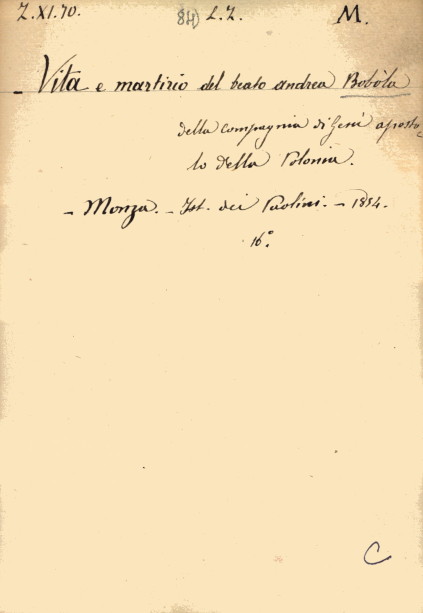 Z.XI.70. 84) L.Z. M.
- Vita e martirio del beato andrea Bobòla
della compagnia di Gesù aposto
lo della Polonia.
- Monza. - Ist. dei Paolini. - 1854.
16.°
C